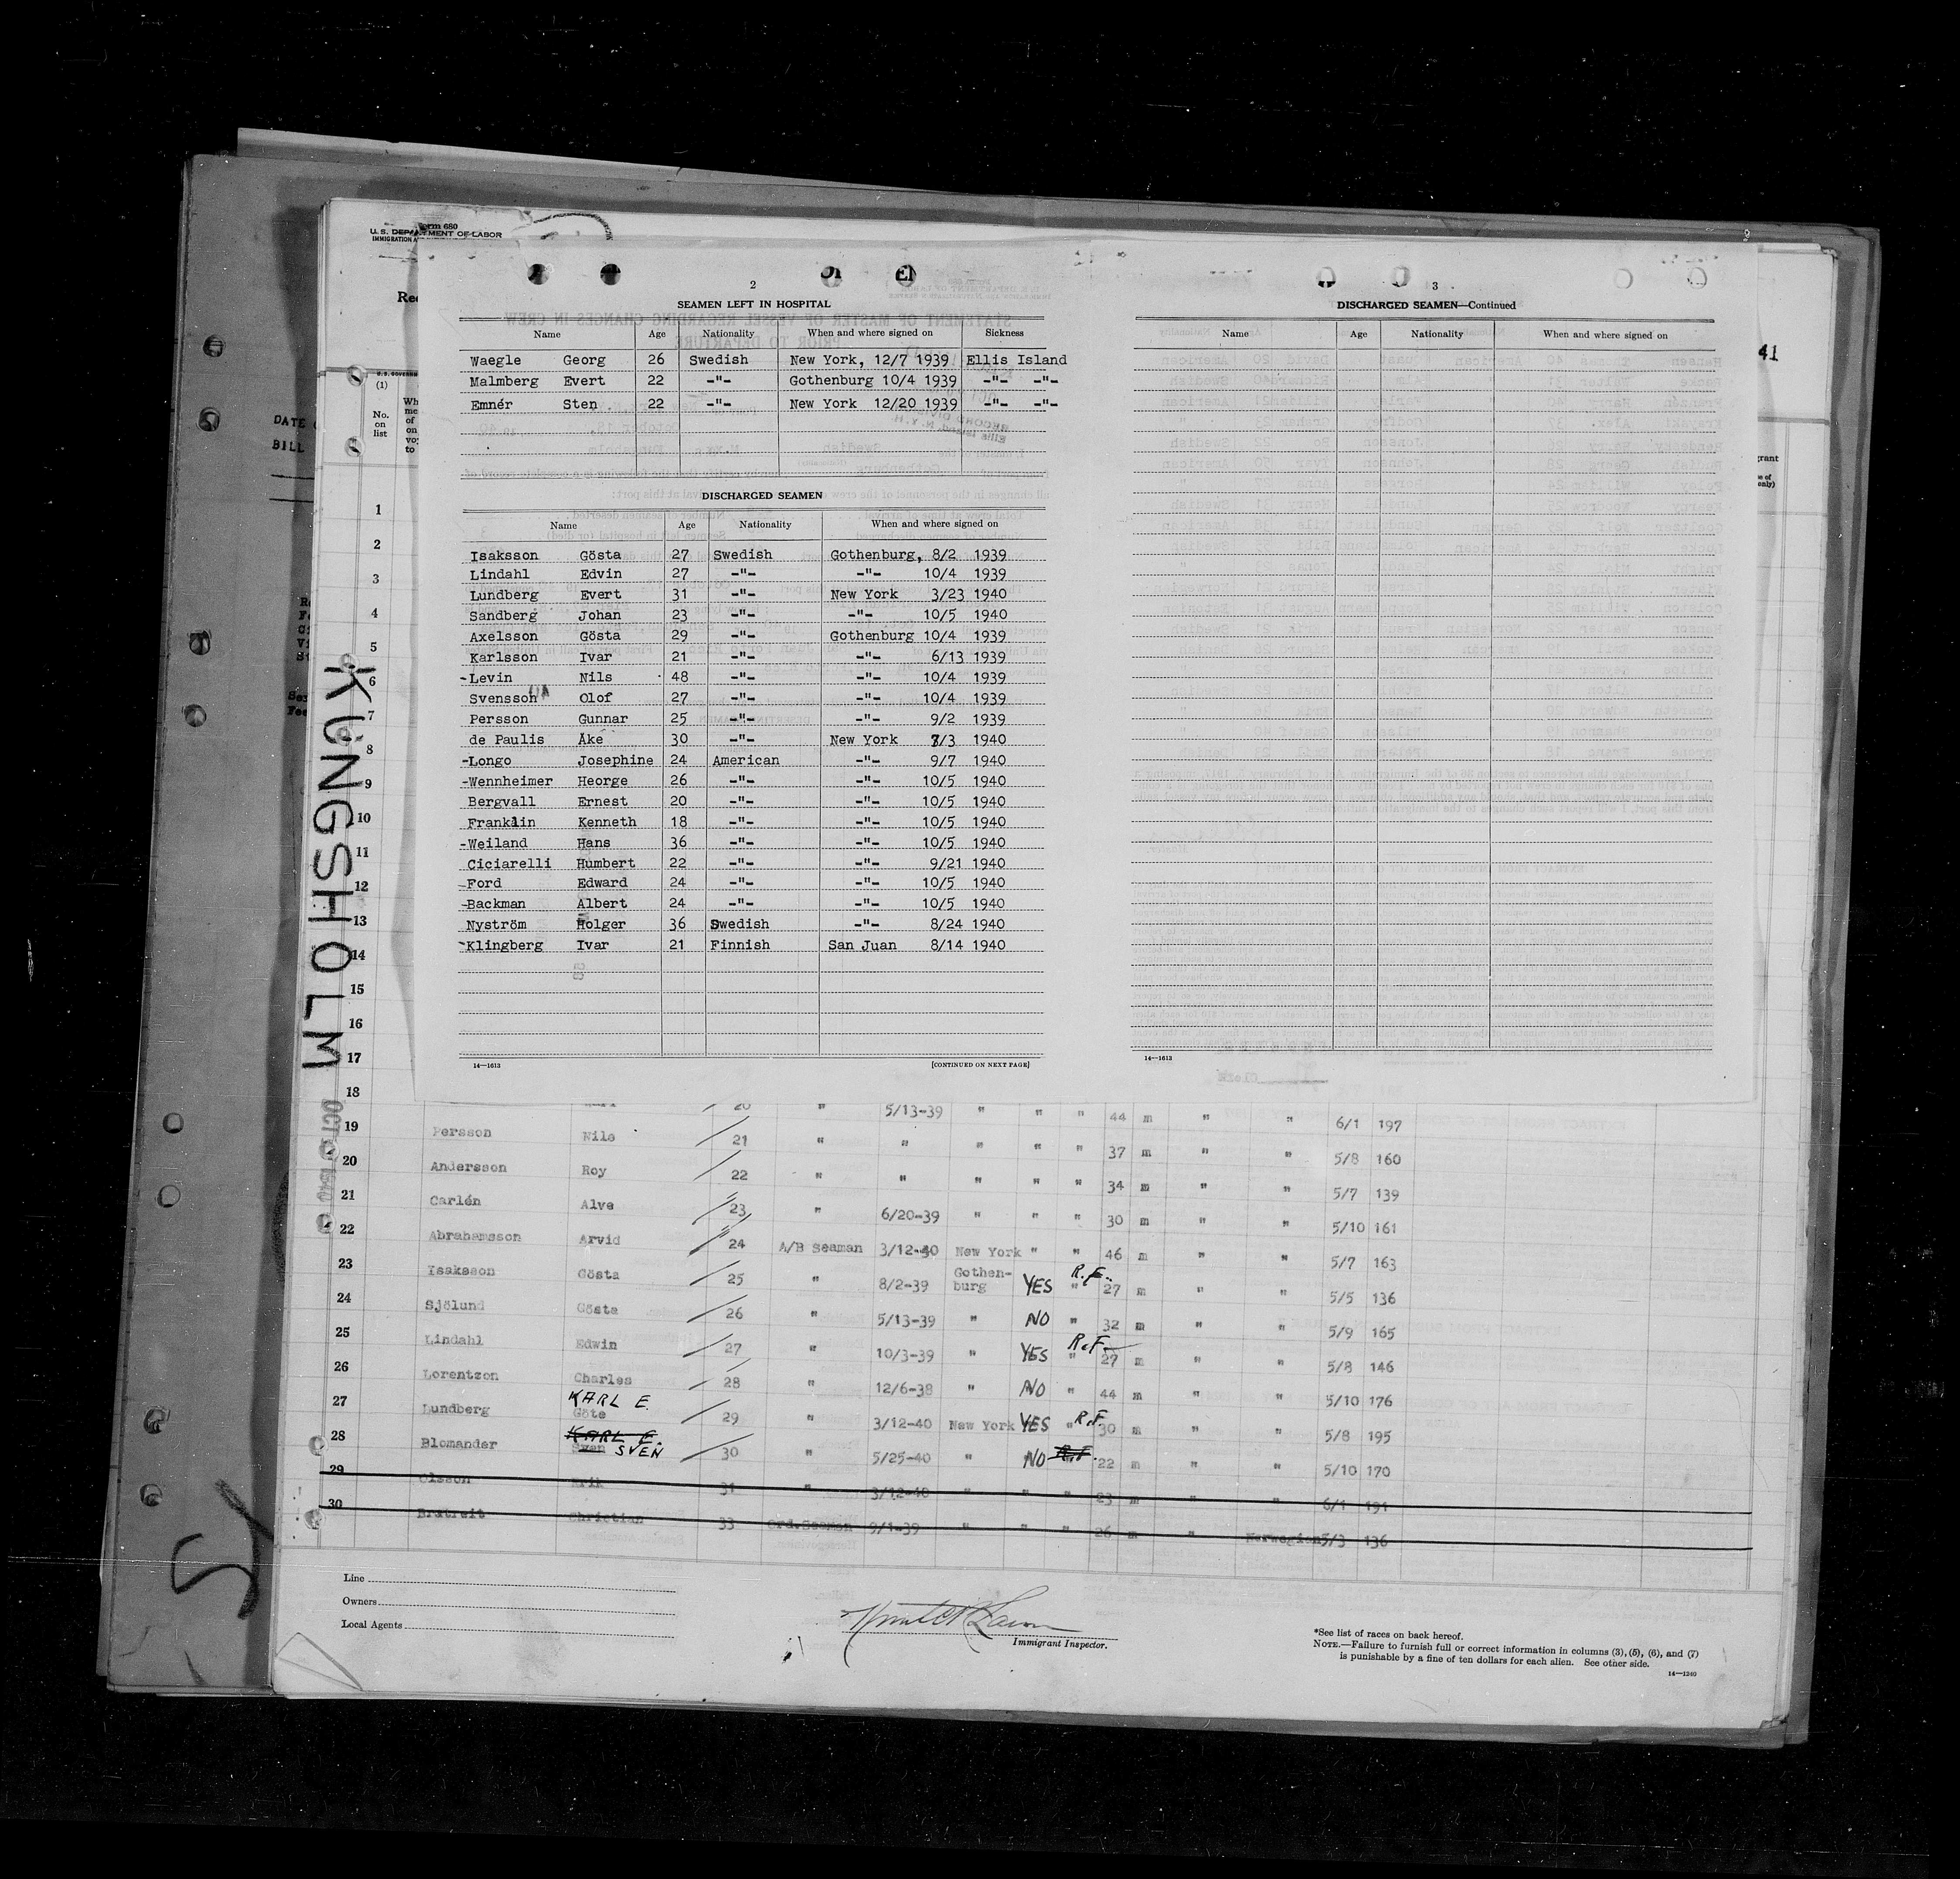 Form 680
U. S. DEPARTMENT OF LABOR
2
SEAMEN LEFT IN HOSPITAL
Name Age Nationality When and where signed on Sickness
Waegle Georg 26 Swedish New York, 12/7 1939 Ellis Island
Malmberg Evert 22 -"- Gothenburg 10/4 1939 -"- -"-
Emnér Sten 22 -"- New York 12/20 1939 -"- -"-
DISCHARGED SEAMEN
Name Age Nationality When and where signed on
Isaksson Gösta 27 Swedish Gothenburg, 8/2 1939
Lindahl Edvin 27 -"- -"- 10/4 1939
Lundberg Evert 31 -"- New York 3/23 1940
Sandberg Johan 23 -"- -"- 10/5 1940
Axelsson Gösta 29 -"- Gothenburg 10/4 1939
Karlsson Ivar 21 -"- -"- 6/13 1939
-Levin Nils 48 -"- -"- 10/4 1939
Svensson Olof 27 -"- -"- 10/4 1939
Persson Gunnar 25 -"- -"- 9/2 1939
de Paulis Åke 30 -"- New York /3 1940
-Longo Josephine 24 American -"- 9/7 1940
-Wennheimer Heorge 26 -"- -"- 10/5 1940
Bergvall Ernest 20 -"- -"- 10/5 1940
Franklin Kenneth 18 -"- -"- 10/5 1940
-Weiland Hans 36 -"- -"- 10/5 1940
Ciciarelli Humbert 22 -"- -"- 9/21 1940
-Ford Edward 24 -"- -"- 10/5 1940
-Backman Albert 24 -"- -"- 10/5 1940
Nyström Holger 36 Swedish -"- 8/24 1940
-Klingberg Ivar 21 Finnish San Juan 8/14 1940
14—1613 [CONTINUED ON NEXT PAGE]
3
DISCHARGED SEAMEN—Continued
Name Age Nationality When and where signed on
14—1613
41
(1)
No. on list
DATE
BILL
KUNGSHOLM
1
2
3
4
5
6
7
8
9
10
11
12
13
14
15
16
17
18
19
20
21
22
23
24
25
26
27
28
29
30
20 " 5/13-39 " " " 44 m " " 6/1 197
Persson Nils 21 " " " " " 37 m " " 5/8 160
Andersson Roy 22 " " " " " 34 m " " 5/7 139
Carlén Alve 23 " 6/20-39 " " " 30 m " " 5/10 161
Abrahamsson Arvid 24 A/B Seaman 3/12-40 New York " " 46 m " " 5/7 163
Isaksson Gösta 25 " 8/2-39 Gothen-burg YES R.F. " 27 m " " 5/5 136
Sjölund Gösta 26 " 5/13-39 " NO " 32 m " " 5/9 165
Lindahl Edwin 27 " 10/3-39 " YES R.F. " 27 m " " 5/8 146
Lorentzon Charles 28 " 12/6-38 " NO " 44 m " " 5/10 176
KARL E.
Lundberg Göte 29 " 3/12-40 New York YES " R.F. 30 m " " 5/8 195
KARL E.
Blomander Sven SVEN 30 " 5/25-40 " NO R.F. 22 m " " 5/10 170
Olsson Erik 31 " 3/12-40 " " " 23 m " " 6/1 191
Bratreit Christian 33 Ord.Seaman 9/1-39 " " " 26 m " Norwegian 5/3 136
Line
Owners
Local Agents
Immigrant Inspector.
*See list of races on back hereof.
NOTE.—Failure to furnish full or correct information in columns (3), (5), (6), and (7)
is punishable by a fine of ten dollars for each alien. See other side.
14—1240